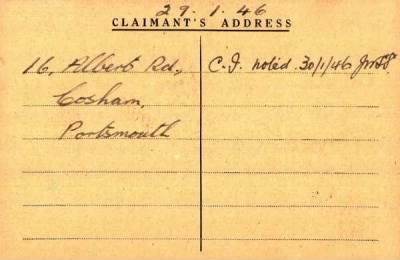 29.1.46
CLAIMANT'S ADDRESS
16, Albert Rd.,
Cosham,
Portsmouth
C.I. noted. 30/1/46